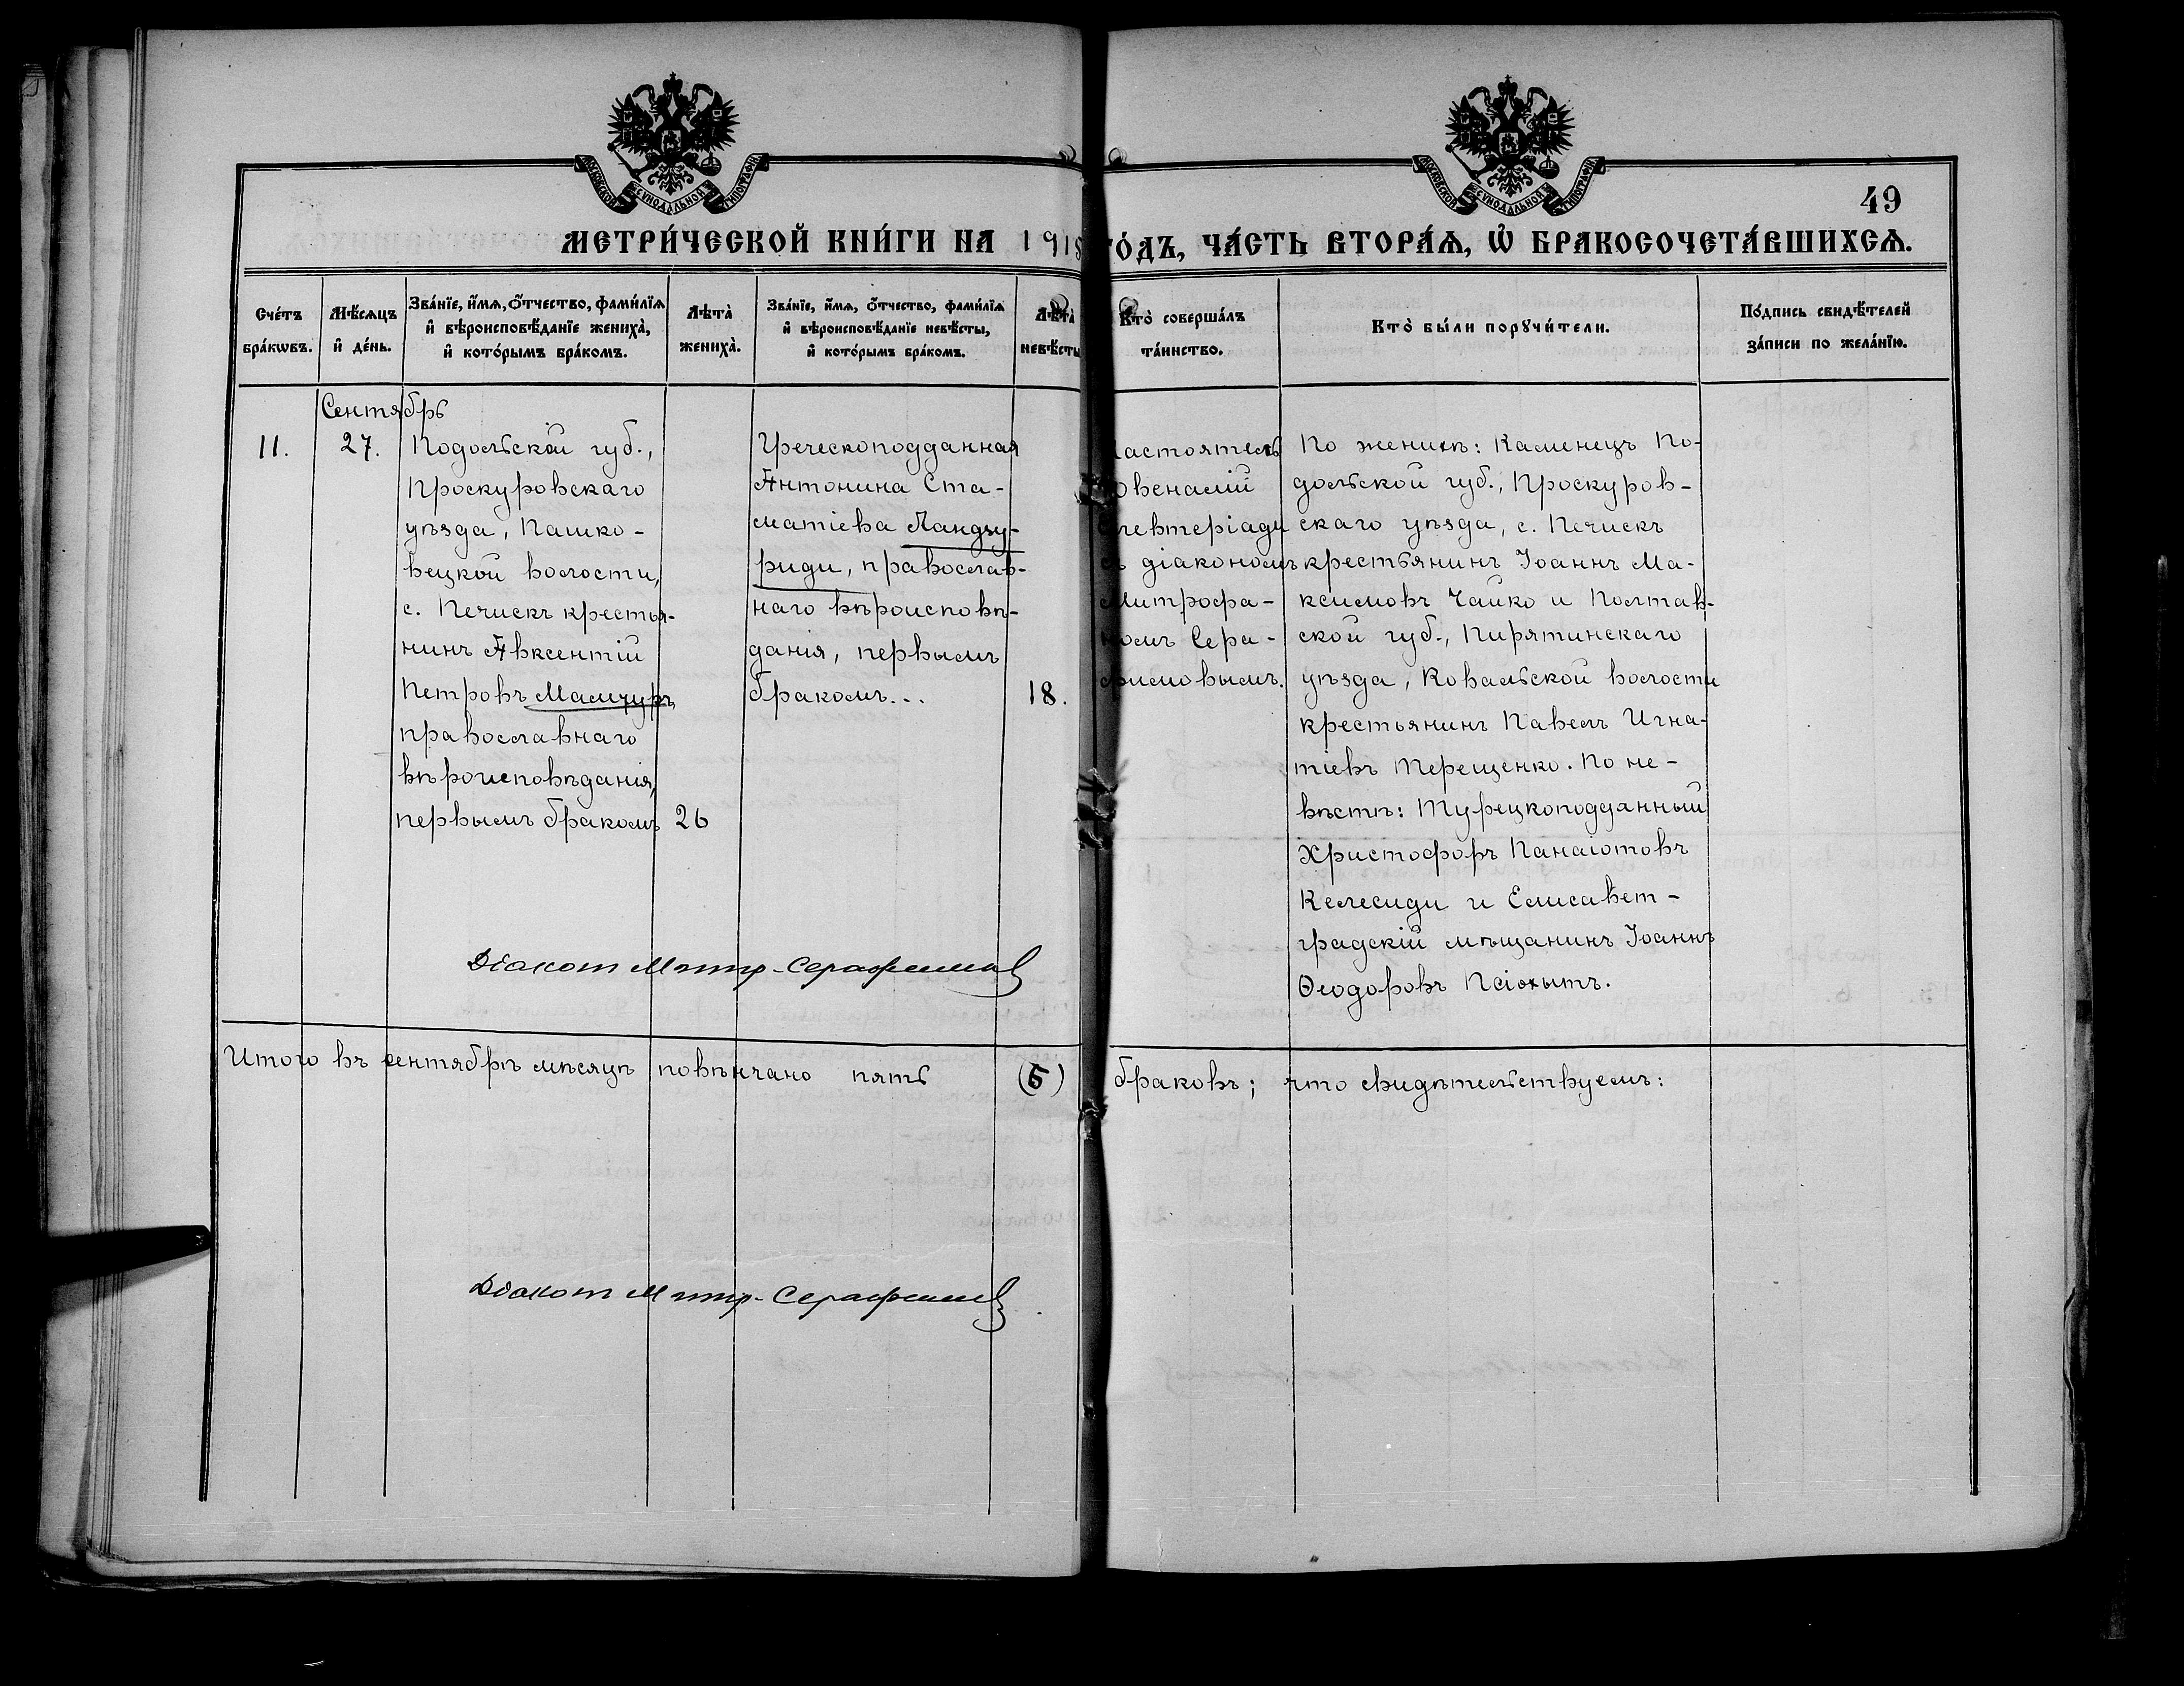 МОСКОВСКОЙ СѴНОДАЛЬНОЙ ТИПОГРАФІИ
МОСКОВСКОЙ СѴНОДАЛЬНОЙ ТИПОГРАФІИ
49
МЕТРИ́ЧЕСКОЙ КНИ́ГИ НА 1918 ГО́ДЪ, ЧА́СТЬ ВТОРА́Ѧ, Ѡ҆ БРАКОСОЧЕТА́ВШИХСѦ.
Сче́тъ
бра́кѡвъ.
Мѣ́сѧцъ
и҆ де́нь.
Зва́нїе, и҆́мѧ, ѻ҆́тчество, фами́лїѧ
и҆ вѣроисповѣ́данїе жениха̀,
и҆ кото́рымъ бра́комъ.
Лѣта̀
жениха̀.
Зва́нїе, и҆́мѧ, ѻ҆́тчество, фами́лїѧ
и҆ вѣроисповѣ́данїе невѣ́сты,
и҆ кото́рымъ бра́комъ.
Лѣта̀
невѣ́сты
Кто̀ соверша́лъ
та́инство.
Кто̀ бы́ли порꙋчи́тели.
По́дпись свидѣ́телей
за́писи по жела́нїю.
Сентябрь
11.
27.
Подольской губ.,
Проскуровскаго
уѣзда, Пашко-
вецкой волости,
с. Печискъ крестья-
нинъ Авксентій
Петровъ Мамчуръ,
православнаго
вѣроисповѣданія,
первымъ бракомъ
26
Греческоподданная
Антонина Ста-
матіева Ландзу-
риди, православ-
наго вѣроисповѣ-
данія, первымъ
бракомъ...
18.
Настоятель
Ювеналій
Елевтеріади
съ діакономъ
Митрофа-
номъ Сера-
фимовымъ.
По женихѣ: Каменецъ По-
дольской губ., Проскуров-
скаго уѣзда, с. Печискъ
крестьянинъ Іоаннъ Ма-
ксимовъ Чайко и Полтав-
ской губ., Пирятинскаго
уѣзда, Ковальской волости
крестьянинъ Павелъ Игна-
тіевъ Терещенко. По не-
вѣстѣ: Турецкоподданный
Христофоръ Панаіотовъ
Келесиди и Елисавет-
градскій мѣщанинъ Іоаннъ
Ѳеодоровъ
Діаконъ Митр. Серафимов
Итого въ сентябрѣ мѣсяцѣ повѣнчано пять (5) браковъ; что свидѣтельствуемъ:
Діаконъ Митр. Серафимов